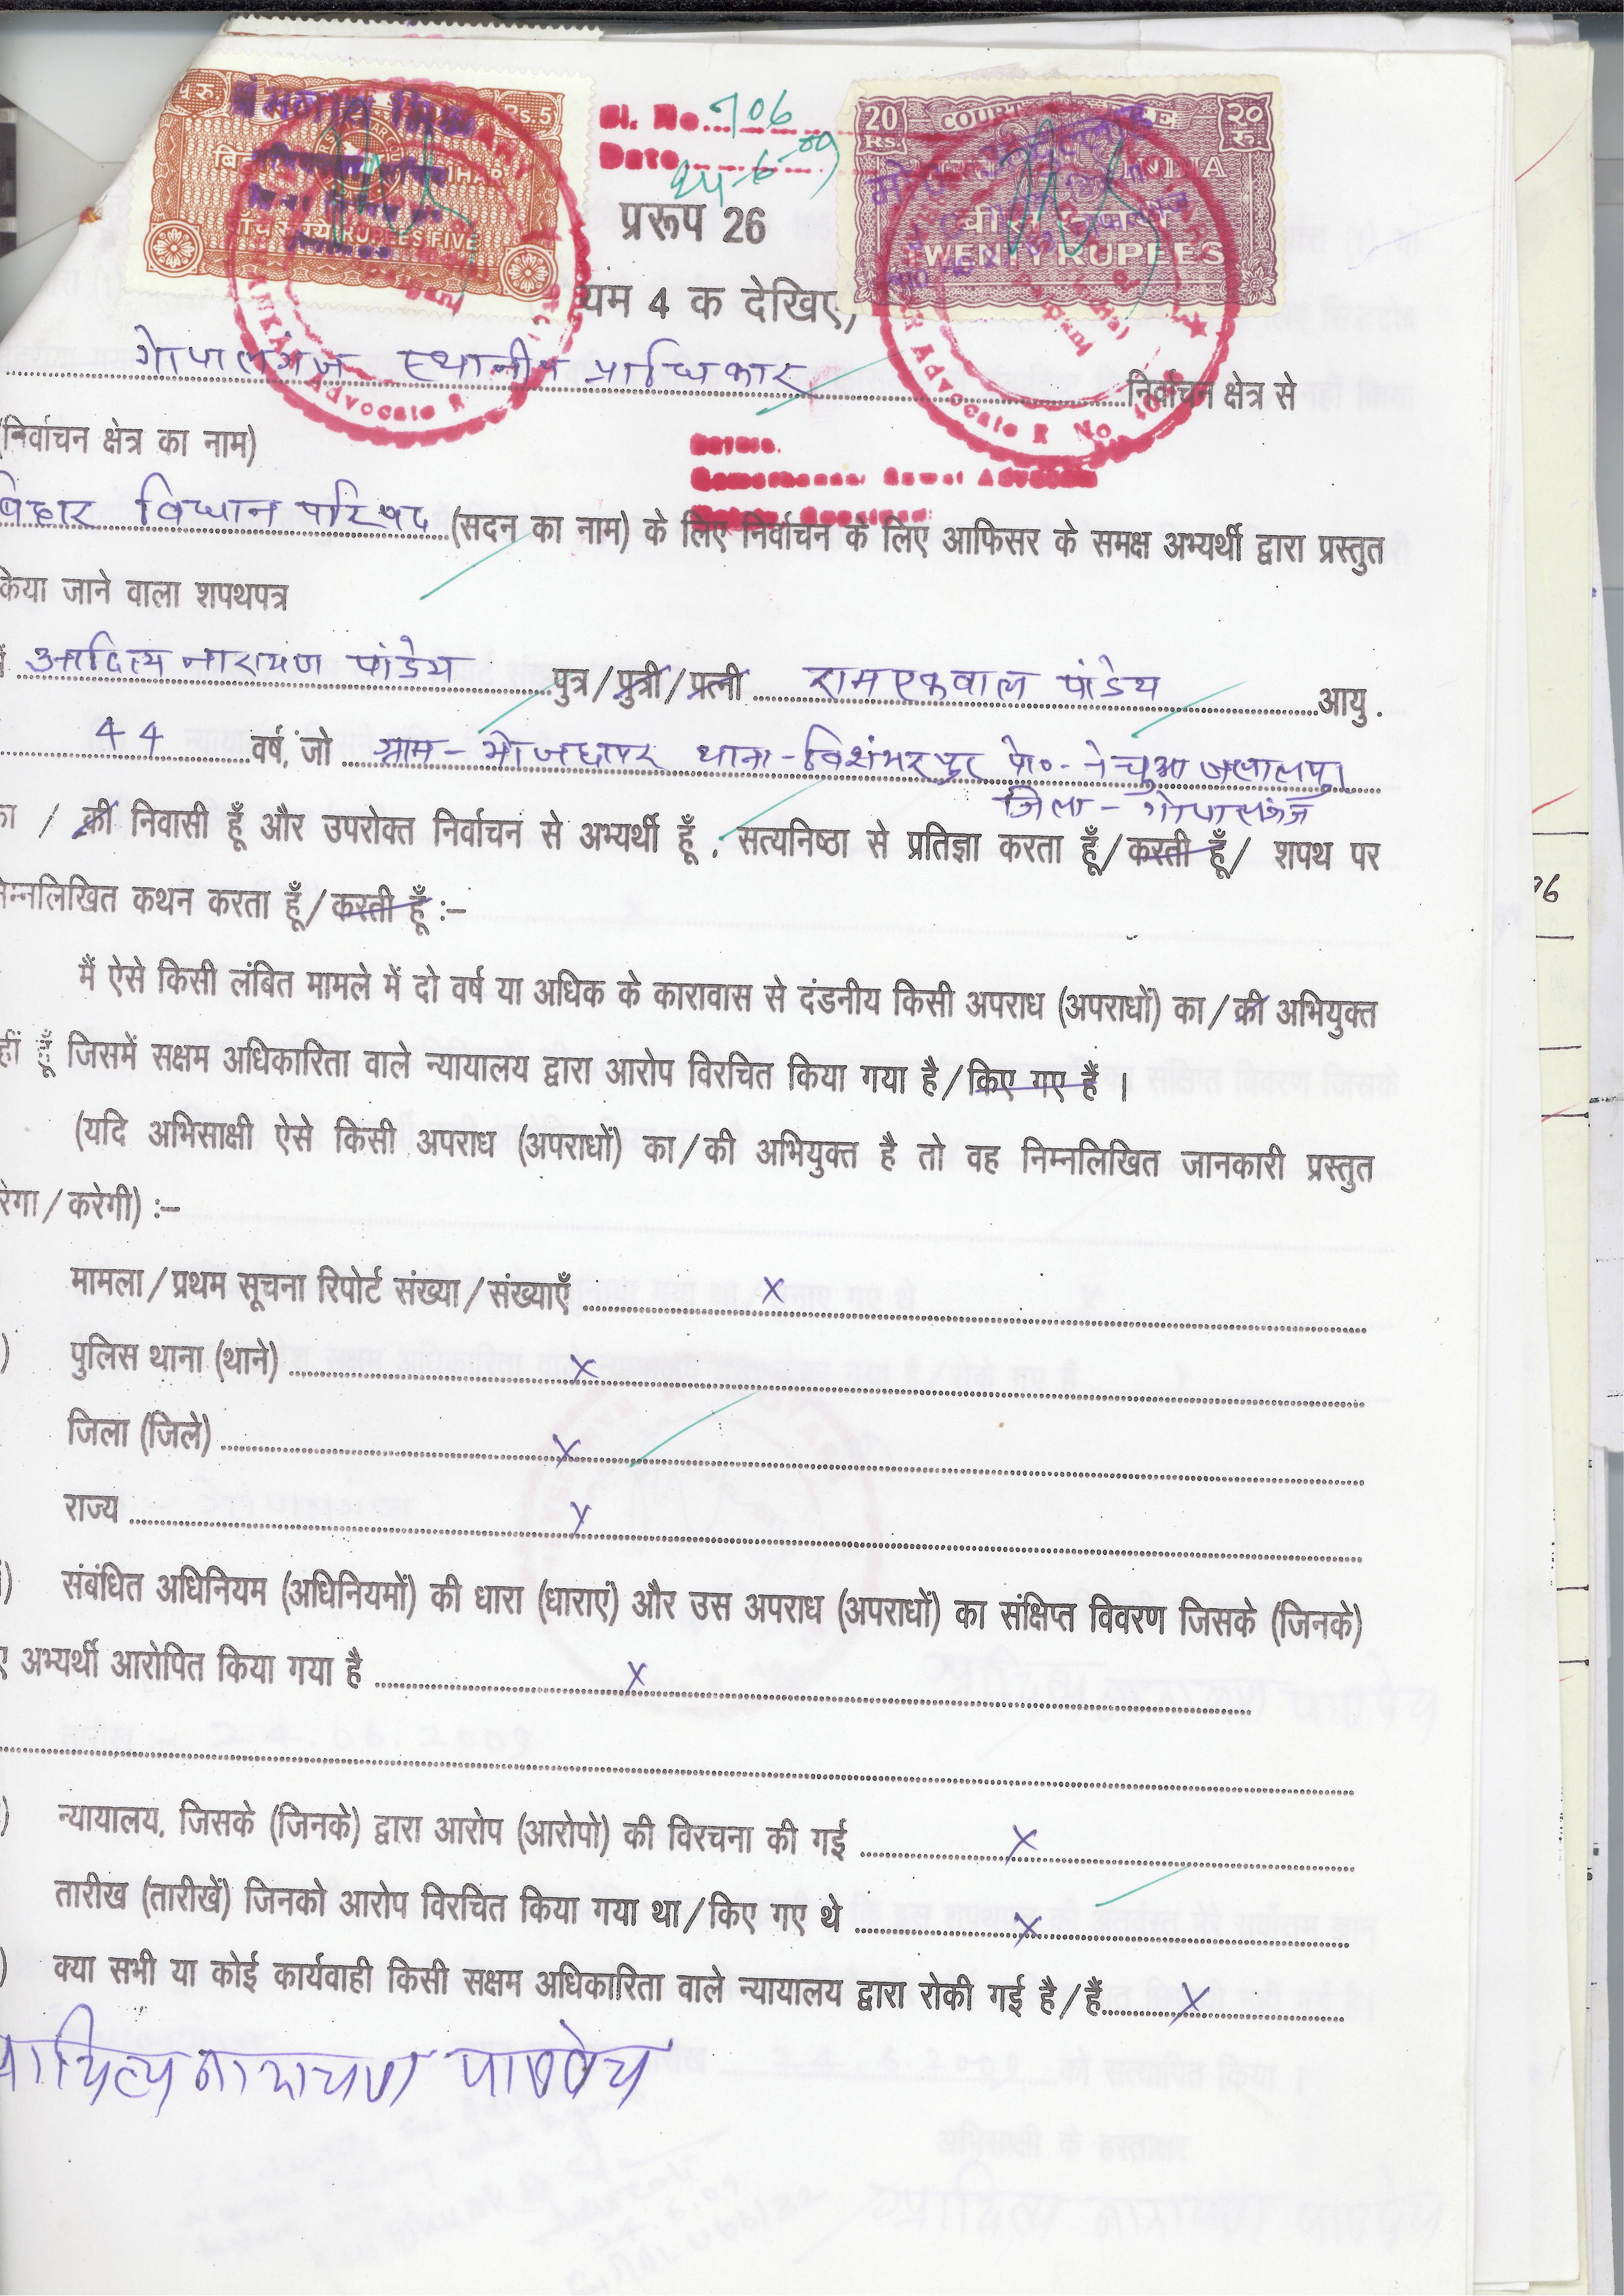 ५ रु Rs.5
RUPEES FIVE
20 Rs. COURT FEE २० रु.
INDIA
बीस रुपये
TWENTY RUPEES
Sl. No. 706
Date 24-6-09
प्ररूप 26
यम 4 क देखिए,
गोपालगंज स्थानीय प्राधिकार निर्वाचन क्षेत्र से
(निर्वाचन क्षेत्र का नाम)
Advocate R
Advocate R No.
बिहार विधान परिषद (सदन का नाम) के लिए निर्वाचन के लिए आफिसर के समक्ष अभ्यर्थी द्वारा प्रस्तुत
किया जाने वाला शपथपत्र
आदित्य नारायण पांडेय पुत्र/पुत्री/पत्नी रामएकवाल पांडेय आयु .
44 वर्ष, जो ग्राम- भोजछापर थाना-विशंभरपुर पो०- नेचुआ जलालपुर
जिला - गोपालगंज
का / की निवासी हूँ और उपरोक्त निर्वाचन से अभ्यर्थी हूँ , सत्यनिष्ठा से प्रतिज्ञा करता हूँ/करती हूँ/ शपथ पर
नेम्नलिखित कथन करता हूँ/करती हूँ :–
मैं ऐसे किसी लंबित मामले में दो वर्ष या अधिक के कारावास से दंडनीय किसी अपराध (अपराधों) का/की अभियुक्त
हीं हूँ जिसमें सक्षम अधिकारिता वाले न्यायालय द्वारा आरोप विरचित किया गया है/किए गए हैं ।
(यदि अभिसाक्षी ऐसे किसी अपराध (अपराधों) का/की अभियुक्त है तो वह निम्नलिखित जानकारी प्रस्तुत
रेगा/करेगी) :–
मामला/प्रथम सूचना रिपोर्ट संख्या/संख्याएँ x
) पुलिस थाना (थाने) x
जिला (जिले) x
राज्य x
) संबंधित अधिनियम (अधिनियमों) की धारा (धाराएं) और उस अपराध (अपराधों) का संक्षिप्त विवरण जिसके (जिनके)
ए अभ्यर्थी आरोपित किया गया है x
) न्यायालय, जिसके (जिनके) द्वारा आरोप (आरोपो) की विरचना की गई x
तारीख (तारीखें) जिनको आरोप विरचित किया गया था/किए गए थे x
) क्या सभी या कोई कार्यवाही किसी सक्षम अधिकारिता वाले न्यायालय द्वारा रोकी गई है/हैं x
आदित्य नारायण पाण्डेय